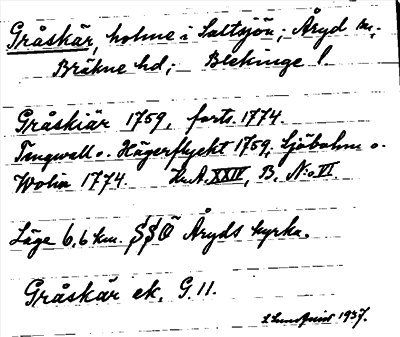 Gråskär, holme i Saltsjön; Åryd sn;
Bräkne hd; Blekinge l.
Gråskiär 1759, forts. 1774.
Tingwall o. Hägerflycht 1759, Sjöbohm o.
Wolin 1774. K.A. XXIV, B, N:o VI.
Läge 6,6 km. SSÖ Åryds kyrka.
Gråskär ek. G. 11.
1937.